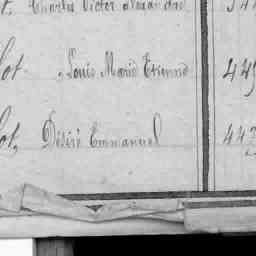 t. Charles Victor Alexandre 344
lot. , Louis Marie Etienne 449
lot, Désiré Emmanuel 447